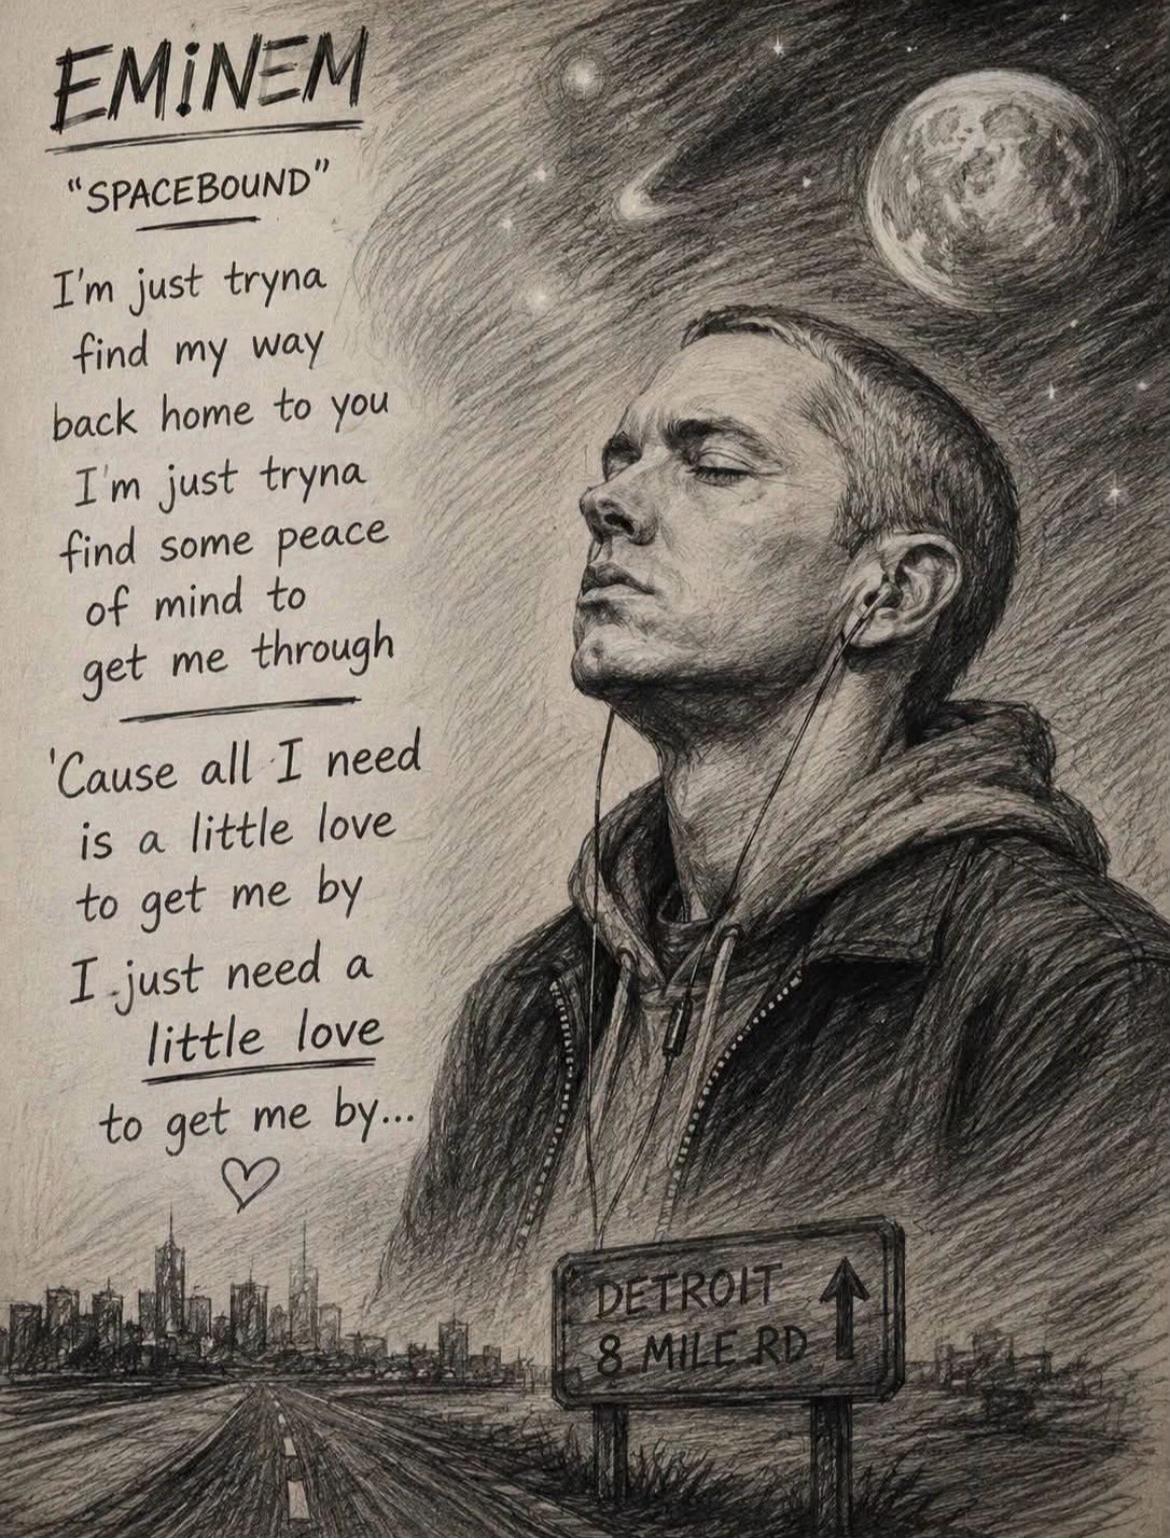 EMiNEM
"SPACEBOUND"
I'm just tryna
find my way
back home to you
I'm just tryna
find some peace
of mind to
get me through
'Cause all I need
is a little love
to get me by
I just need a
little love
to get me by...
DETROIT
8 MILE RD